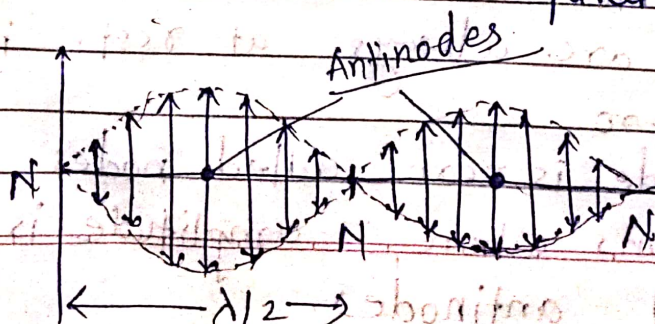 Antinodes
N
N
N
λ/2